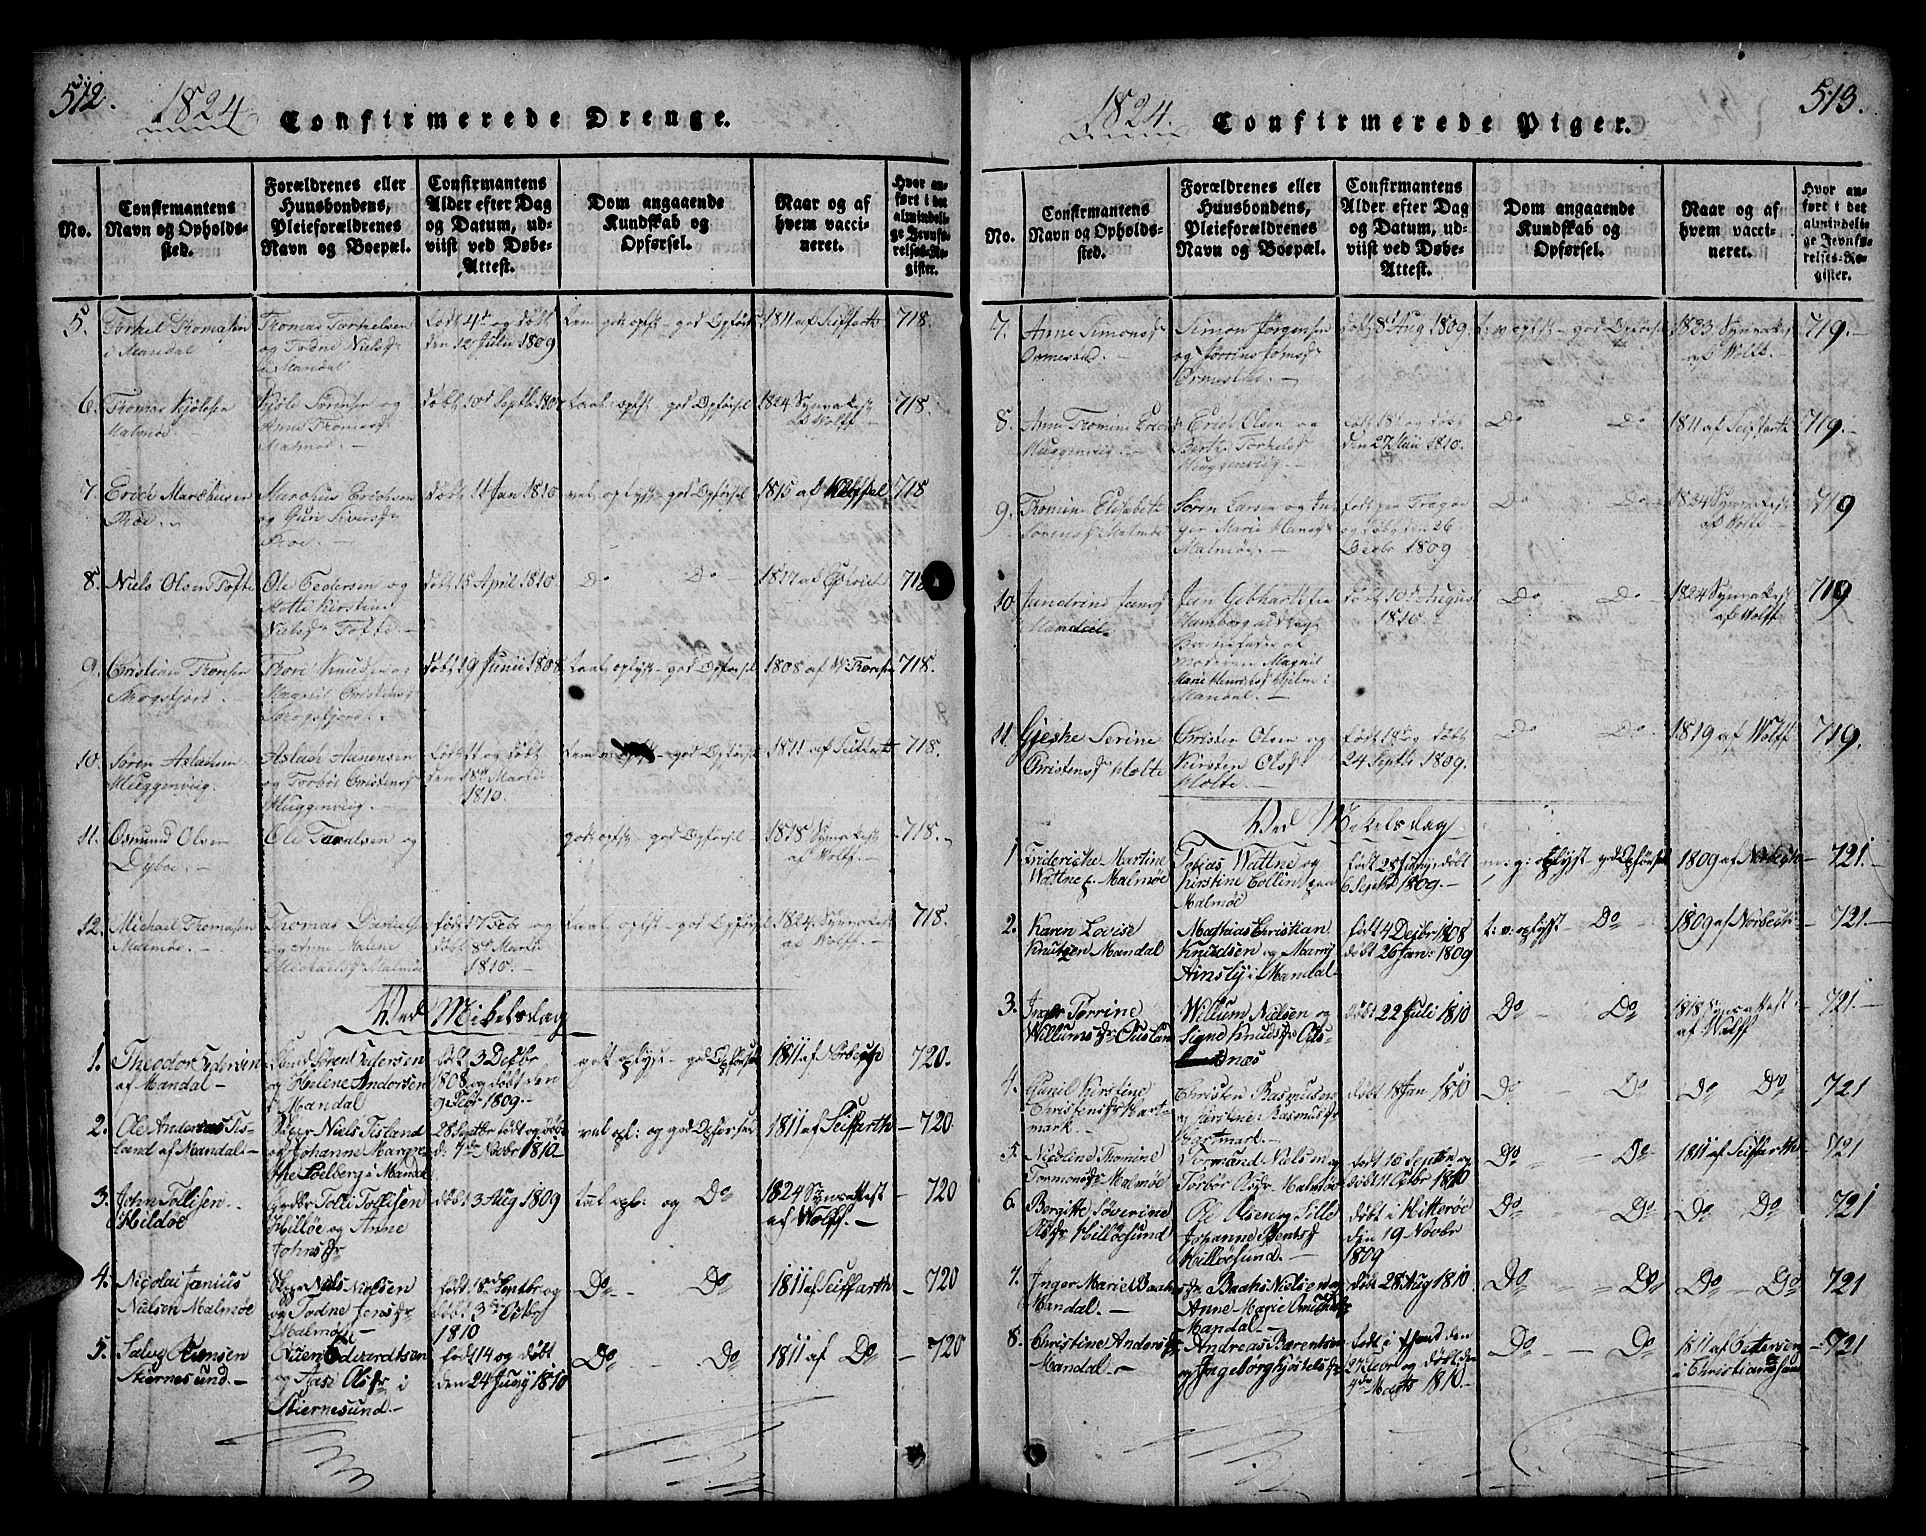 512.
1824
Confirmerede Drenge.
No.
Confirmantens
Navn og Opholds-
sted.
Forældrenes eller
Huusbondens,
Pleieforældrenes
Navn og Boepæl.
Confirmantens
Alder efter Dag
og Datum, ud-
viist ved Døbe-
Attest.
Dom angaaende
Kundskab og
Opførsel.
Naar og af
hvem vacci-
neret.
Hvor an-
ført i det
almindeli-
ge Jevnfø-
relses-Re-
gister.
5.
Torkel Thomassen
i Mandal
Thomas Torkelsen
og Todne Nielsdr
i Mandal
født 4de og døbt
den 12 Julii 1809
god Opførsel
1811 af Seiffarth
718.
6.
Thomas Kjølsen
Malmøe.
Kjøle
og
Anne Thomasdr
Malmøe.
døbt 10de Septbr 1807
god Opførsel
1824 Synsattest
af Wolff.
718.
7.
Erich Marchussen
Roe.
Marchus Erichsen
og Guri Siversdr
Roe.
døbt 11 Jan 1810
vel oplyst - god Opførsel
1815 af
718
8.
Niels Olsen Tofte
Ole Pedersen og
Mette Kirstine
Nielsdr Tofte.
døbt 15 April 1810.
Do Do
1817 af
718
9.
Christian Thorsen
Skogsfjord.
Thore Knudsen og
Magnil Christensdr
Skogsfjord.
døbt 19 Junii 1808
oplyst - god Opførsel
1808 af Thorsen
718.
10.
Søren Aslachsen
Muggenviig.
Aslach Aanensen
og Torbør Christensdr
Muggenviig.
og døbt
den 18de Martii
1810.
god Opførsel
1811 af Seiffarth
718.
11.
Osmund Olsen
Dybøe.
Ole Taralsen og
god Opførsel
1818 Synsattest
af Wolff.
718.
12.
Michael Thomassen
Malmøe.
Thomas Danielsen
og Anne Malene
Michaelsdr Malmøe
født 17 Febr og
døbt 8de Martii
1810.
oplyst - god Opførsel
1824. Synsattest
af Wolff.
718.
Ved Mikelsdag
1.
Theodor Pedersen
af Mandal
Pedersen
og Helene Andersen
i Mandal
født 3 Decbr
1808 og døbt den
9 Febr 1809.
vel oplyst - god Opførsel
1811 af Norbech
720.
2.
Ole Andersens Tis-
land af Mandal
Niels Tisland
og Johanne Margre-
the Solberg i Mandal
28 Septbr født og døbt
d: 7de Novbr 1810
vel opl: og god Opførsel
1811 af Seiffarth
720
3.
John Tollisen
Hildøe
Tolli Tollisen
Hilløe og Anne
Johnsdr
døbt 3 Aug 1809
opl: og Do
1824 Synsattest
af Wolff.
720
4.
Nicolai Janius
Nielsen Malmøe
Niels Nielsen
og Todne Jensdr
Malmøe
født 15de Septbr og
døbt 3die Octbr
1810
Do Do
1811 af Seiffarth
720
5.
Salve Aanensen
Skiernesund.
Aanen Edvardtsen
og Aase Olsdr i
Skiernesund.
født 14 og døbt
den 24 Junij 1810
Do Do
1811 af Do
720
513.
1824.
Confirmerede Piger.
No.
Confirmantens
Navn og Opholds-
sted.
Forældrenes eller
Huusbondens,
Pleieforældrenes
Navn og Boepæl.
Confirmantens
Alder efter Dag
og Datum, ud-
viist ved Døbe-
Attest.
Dom angaaende
Kundskab og
Opførsel.
Naar og af
hvem vacci-
neret.
Hvor an-
ført i det
almindeli-
ge Jevnfø-
relses-Re-
gister.
7.
Anne Simonsdr
Ormestad.
Simon Jørgensen
og
Ormestad.
døbt 8de Aug 1809.
t: v: oplyst - god Opførsel
1823 Synsattest
af Wolff.
719.
8.
Anne Thomine Erichsdr
Muggenviig.
Erich Olsen og
Berte Torkelsdr
Muggenviig.
født 18de og døbt
den 27 Maii 1810.
Do Do
1811 af Seiffarth
719.
9.
Thomine Elisabeth
Sørensdr Malmøe
Søren Larsen og In-
ger Marie Hansdr
Malmøe.
og døbt den 26
Decbr 1809
Do Do
1824 Synsattest
af Wolff
719
10.
Jandrine Jansdr
Mandal
Jan Gebhardt fra
Hamborg udlagt
Barnefader af
Moderen Magnil
Marie Henrichsdr Hielm i
Mandal.
døbt 10de August
1810.
Do Do
1824 Synsattest
af Wolff
719
11.
Gjeske Serine
Christensdr Holte
Christen Olsen og
Kirsten Olsdr
Holte.
født 19 og døbt
24 Septbr 1809.
Do Do
1819 af Wolff
719.
Ved Mikelsdag
1
Friderikke Martine
Wattne f. Malmøe
Tobias Wattne og
Kirstine Tollin paa
Malmøe
født 28 Junij, døbt
6 Septbr 1809.
m: g: oplyst god Opførsel
1809 af Norbech
721.
2.
Karen Lovise
Knutzen Mandal
Mathias Christian
Knudsen og Marry
Ainsly i Mandal
født 4 Decbr 1808
døbt 26 Jan: 1809
t: v: oplyst Do
1809 af Norbech
721.
3.
Inger Torrine
Willumsdr Ousland
Willum Nielsen og
Signe Knudsdr Ous-
næs
døbt 22 Juli 1810
Do Do
1818 Synsattest
af Wolff
721
4.
Gunil Kirstine
Christensdr Hart-
mark.
Christen Rasmussen
og Kirstene Rasmusdr
Hartmark.
døbt 18 Jan 1810
Do Do
Do Do
721
5.
Nicoline Thomine
Tormonsdr Malmøe
Tormond Nielsen og
Torbør Olsdr Malmøe
født 15 Septbr og
døbt 11 Octbr 1810
Do Do
1811 af Seiffarth
721
6.
Bergitte Severine
Olsdr Hilløesund
Ole Olsen og Sille
Johanne Berntsdr
Hilløesund.
døbt i Hitterøe
den 19 Novbr
1809
Do Do
Do Do
721
7.
Inger Marie Baahs-
dr Mandal.
Baahs Nielsen og
Anne Marie
Mandal.
døbt 28 Aug 1810
Do Do
Do Do
721
8.
Christine Andersdr
Mandal.
Andreas Barentsen
og Ingeborg Kjetelsdr
født i den
27 og døbt den
4de Marts 1810.
Do Do
1811 af Pedersen
i Christiansand
721